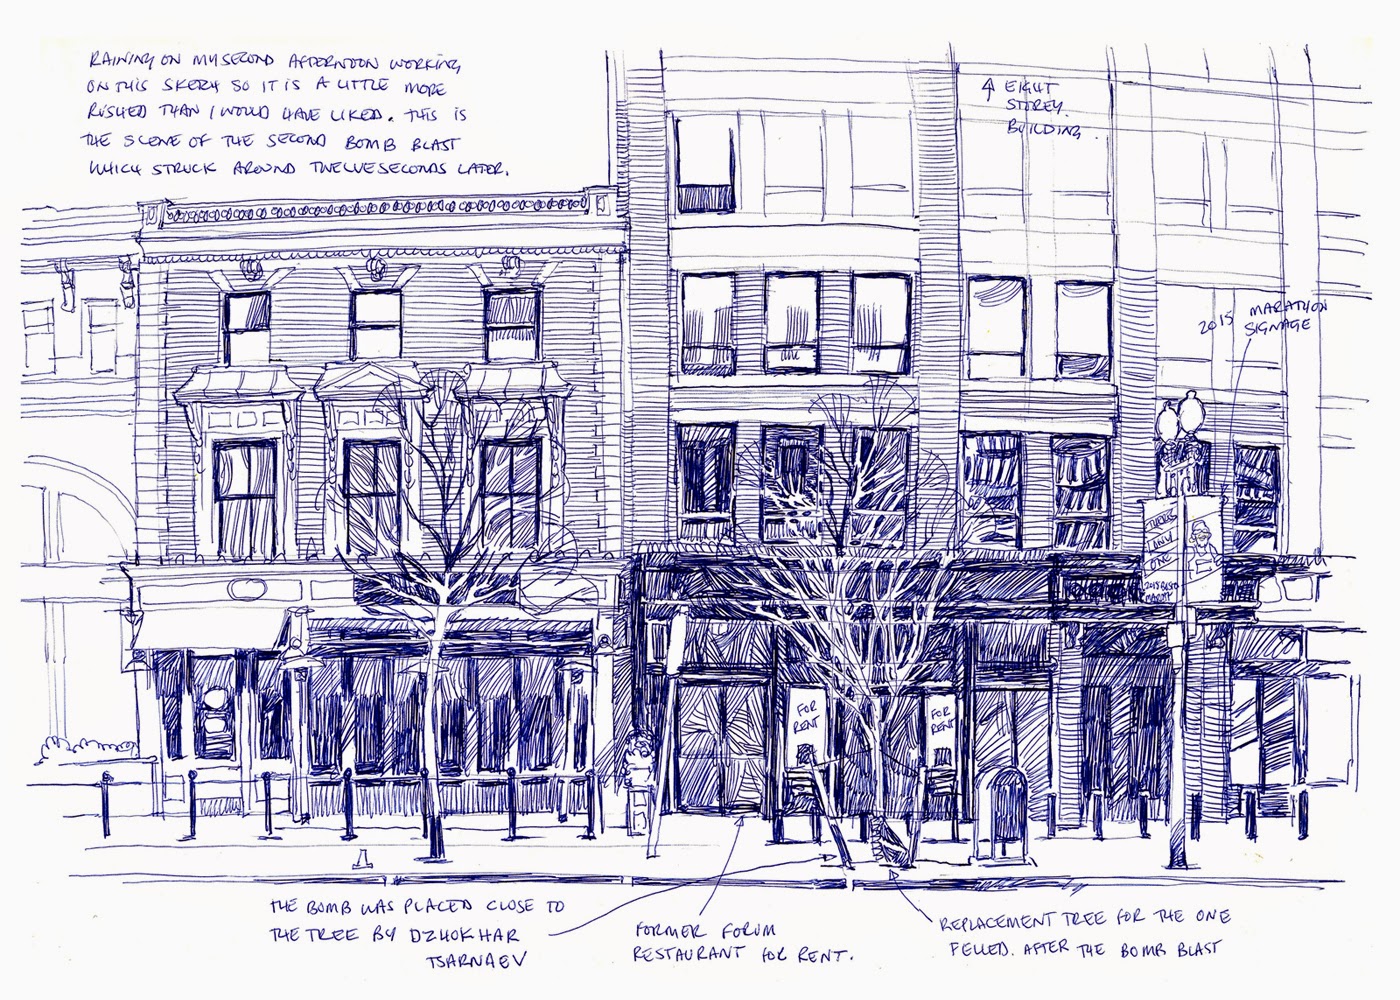 RAINING ON MY SECOND AFTERNOON WORKING
ON THIS SKETCH SO IT IS A LITTLE MORE
RUSHED THAN I WOULD HAVE LIKED. THIS IS
THE SCENE OF THE SECOND BOMB BLAST
WHICH STRUCK AROUND TWELVE SECONDS LATER.
EIGHT
STOREY.
BUILDING.
2015 MARATHON
SIGNAGE
THERE'S
ONLY
ONE
2015 BOSTON
MARATHON
FOR
RENT
FOR
RENT
THE BOMB WAS PLACED CLOSE TO
THE TREE BY DZHOKHAR
TSARNAEV
FORMER FORUM
RESTAURANT FOR RENT.
REPLACEMENT TREE FOR THE ONE
FELLED. AFTER THE BOMB BLAST